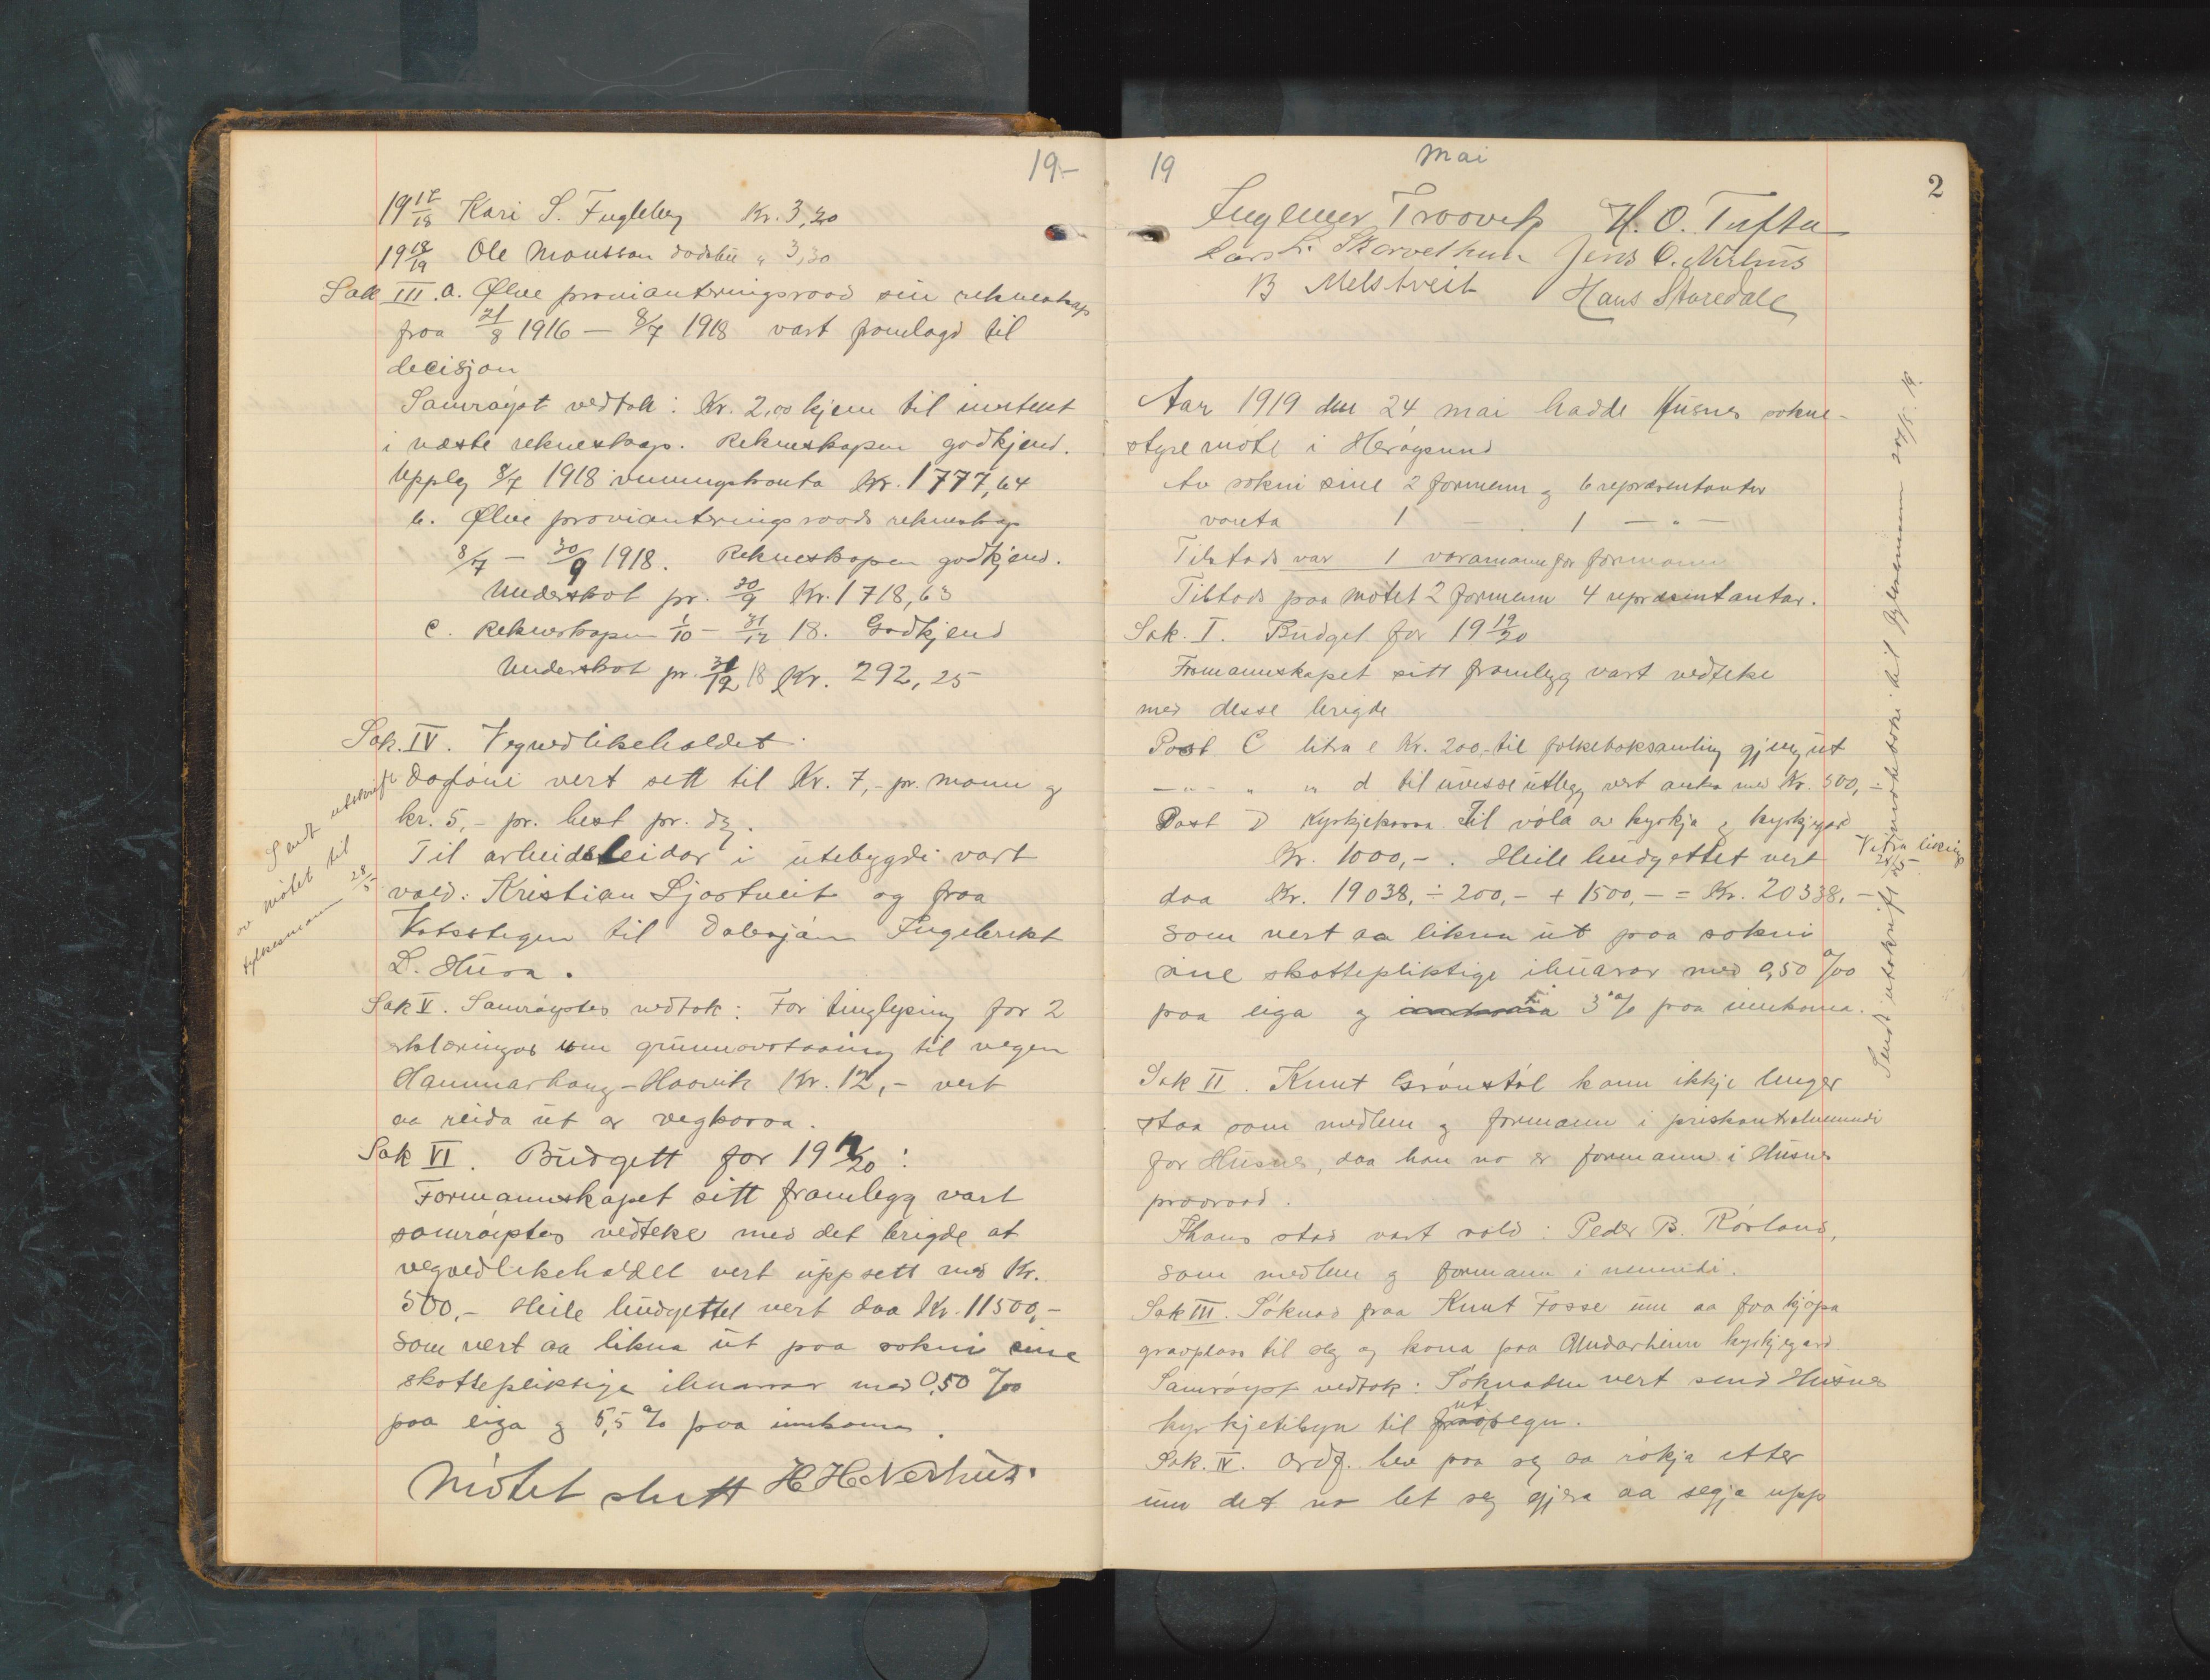 19-
19 17/18 Kari S. Fugleberg Kr. 3,20
19 18/19 Ole Monsson dødsbu " 3,30
Sak III. a. Ølve provianteringsraad sin rekneskap
fraa 21/8 1916 — 8/7 1918 vart framlagd til
decisjon
Samrøyst vedtok: Kr. 2,00 kjem til inntekt
i næste rekneskap. Rekneskapen godkjend.
Upplag 8/7 1918 vinningskonto Kr. 1777,64
b. Ølve provianteringsraads rekneskap
8/7 — 30/9 1918. Rekneskapen godkjend.
Underskot pr. 30/9 Kr. 1718,63
c. Rekneskapen 1/10 — 31/12 18. Godkjend
Underskot pr. 31/12 18 Kr. 292,25
Sak. IV. Vegvedlikeholdet.
Dagløni vert sett til Kr. 7,- pr. mann og
kr. 5,- pr. hest pr. dag.
Til arbeidsleidar i utebygdi vart
vald: Kristian Ljostveit og fraa
Vatsstegen til Ingebrikt
L. Husa.
Sendt utskrift
av møtet til
fylkesmann 28/5
Sak V. Samrøystes vedtok: For tinglysing for 2
erklæringar um grunnavstaaing til vegen
Hammarhaug-Haavik Kr. 12,- vert
aa reida ut av vegkassa.
Sak VI. Budgett for 19 19/20:
Formannskapet sitt framlegg vart
samrøystes vedteke med det brigde at
vegvedlikeholdet vert uppsett med Kr.
500,- Heile budgettet vert daa Kr. 11500,-
som vert aa likna ut paa sokni sine
skattepliktige ibuarar med 0,50 ‰
paa eiga og 5,5 % paa innkoma.
Møtet slutt H H Nerhus.
19 Mai
2
Ingemer Troovik H. O. Tufta
Lars L. Skarvethun Jens O. Nerhus
B Melstveit Hans Staredale
Aar 1919 den 24 mai hadde Husnes sokne-
styre møte i Herøysund
Av sokni sine 2 formenn og 6 representantar
vanta 1 — . 1 — " —
Tilstads var 1 varamann for formann
Tilstads paa møtet 2 formenn 4 representantar.
Sak. I. Budget for 19 19/20
Formannskapet sitt framlegg vart vedteke
med desse brigde
Post C litra e Kr. 200,- til folkeboksamling gjeng ut
— " — " " d til uvisse utlegg vert auka med Kr. 500,-
Post D Kyrkjekassa. Til vøla av kyrkja og kyrkjegard
Kr. 1000,-. Heile budgettet vert
daa Kr. 19038, ÷ 200,- + 1500,- = Kr. 20338,-
som vert aa likna ut paa sokni
sine skattepliktige ibuarar med 0,50 ‰
paa eiga og innkoma 3 % paa innkoma.
Sak II. Knut Grønstøl kann ikkje lenger
staa som medlem og formann i priskontrolnemndi
for Husnes, daa han no er formann i Husnes
provraad.
I hans stad vart vald: Peder B. Røsland,
som medlem og formann i nemndi.
Sak III. Søknad fraa Knut Fosse um aa faa kjøpa
gravplass til seg og kona paa Undarheim kyrkjegard
Samrøyst vedtok: Søknaden vert send Husnes
kyrkjetilsyn til utsegn.
Sak. IV. Ordf. bev paa seg aa røkja etter
um det no let seg gjera aa segja upp
Sendt utskrift av møteboki til fylkesmann 28/5. 19.
28/5